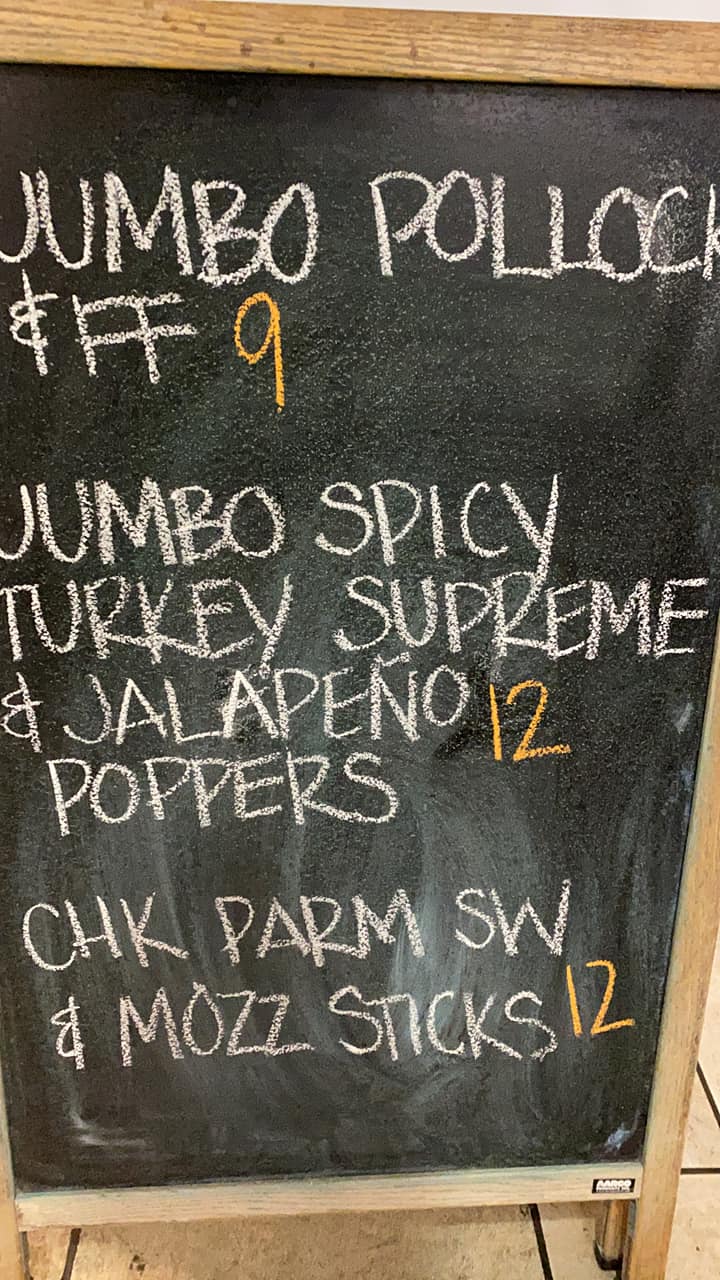 JUMBO POLLOCK
& FF 9
JUMBO SPICY
TURKEY SUPREME
& JALAPEÑO 12
POPPERS
CHK PARM SW
& MOZZ STICKS 12
AARCO